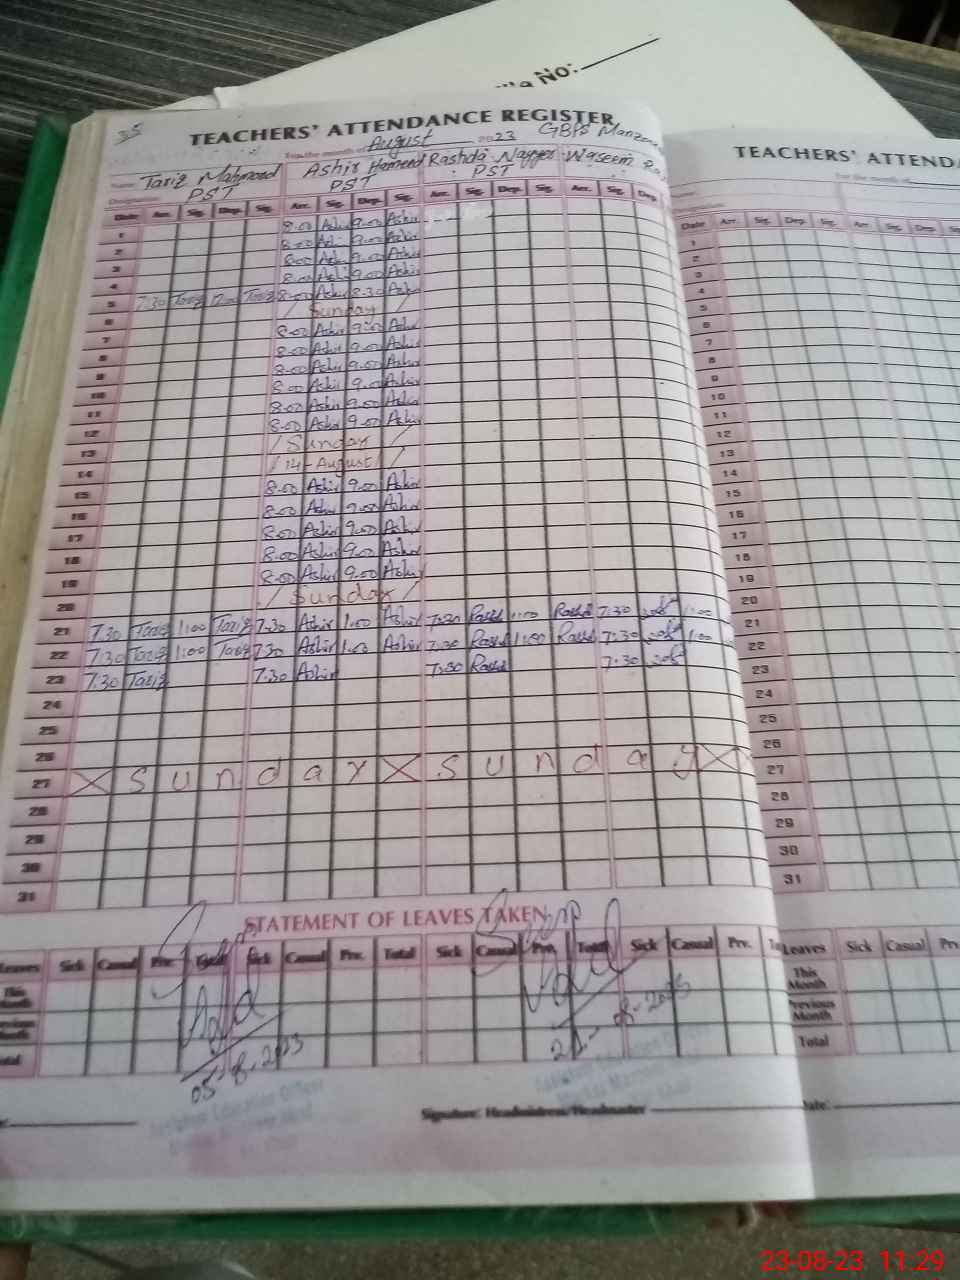 No:
35
TEACHERS' ATTENDANCE REGISTER
For the month of August 2023 GBPS
Name: Tariq Mahmood Ashir Hameed Rashda Nayyer Waseem
Designation: PST PST PST
Date Arr. Sig. Dep. Sig. Arr. Sig. Dep. Sig. Arr. Sig. Dep. Sig. Arr. Sig. Dep.
1 8.00 Ashir 9.00 Ashir
2 8.00 Ashir 9.00 Ashir
3 8.00 Ashir 9.00 Ashir
4 8.00 Ashir 9.00 Ashir
5 7:30 Tariq 12:00 Tariq 8.00 Ashir 8.30 Ashir
6 / Sunday /
7 8.00 Ashir 9.00 Ashir
8 8.00 Ashir 9.00 Ashir
9 8.00 Ashir 9.00 Ashir
10 8.00 Ashir 9.00 Ashir
11 8.00 Ashir 9.00 Ashir
12 8.00 Ashir 9.00 Ashir
13 / Sunday /
14 / 14-August /
15 8.00 Ashir 9.00 Ashir
16 8.00 Ashir 9.00 Ashir
17 8.00 Ashir 9.00 Ashir
18 8.00 Ashir 9.00 Ashir
19 8.00 Ashir 9.00 Ashir
20 / Sunday /
21 7.30 Tariq 1:00 Tariq 7.30 Ashir 1.00 Ashir 7:30 Rashd 1:00 Rashd 7:30 1:00
22 7:30 Tariq 1:00 Tariq 7.30 Ashir 1.00 Ashir 7:30 Rashd 1:00 Rashd 7:30 1:00
23 7:30 Tariq 7.30 Ashir 7:30 Rashd 7:30
24
25
26
27 X S u n d a y X S u n d a y X
28
29
30
31
STATEMENT OF LEAVES TAKEN
Leaves Sick Casual Prv. Total Sick Casual Prv. Total Sick Casual Prv. Total Sick Casual Prv.
This Month
Previous Month
Total
05-8-2023
08-2023
Assistant Education Officer
Signature: Headmistress/Headmaster
TEACHERS' ATTENDA
For the month of
Date Arr. Sig. Dep. Sig. Arr. Sig. Dep.
1
2
3
4
5
6
7
8
9
10
11
12
13
14
15
16
17
18
19
20
21
22
23
24
25
26
27
28
29
30
31
Leaves Sick Casual
This Month
Previous Month
Total
Date:
23-08-23 11:29